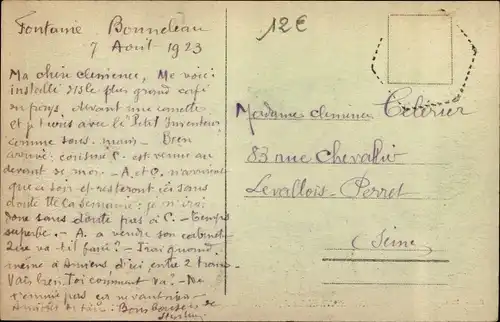 Fontaine Bonneleau
7 Août 1923
12€
Ma chère clémence, Me voici
installé ds le plus grand café
du pays devant une canette
et avec le Petit Inventeur
comme sous-main - Bien
arrivé: cousine C. est venue au
devant de moi - A. et O. n'arrivent
que ce soir et resteront ici sans
doute tte la semaine: je n'irai
donc sans doute pas à C. - Temps
superbe. - A. a vendu son cabinet
Que va-t-il faire? - Irai quand
même à Amiens d'ici entre 2 trains
Vais bien. Toi comment va? - Ne
Bons baisers de
Madame clémence Célérier
83 rue Chevallier
Levallois-Perret
Seine